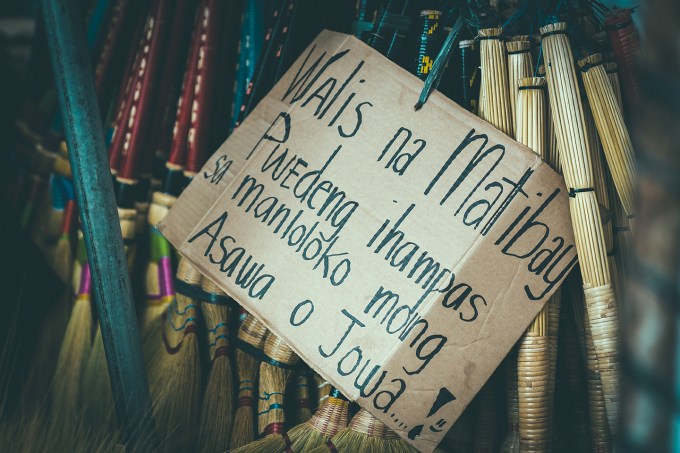 WALis na Matibay
PWEDEng ihampas
sa manloloko mong
Asawa o Jowa....!